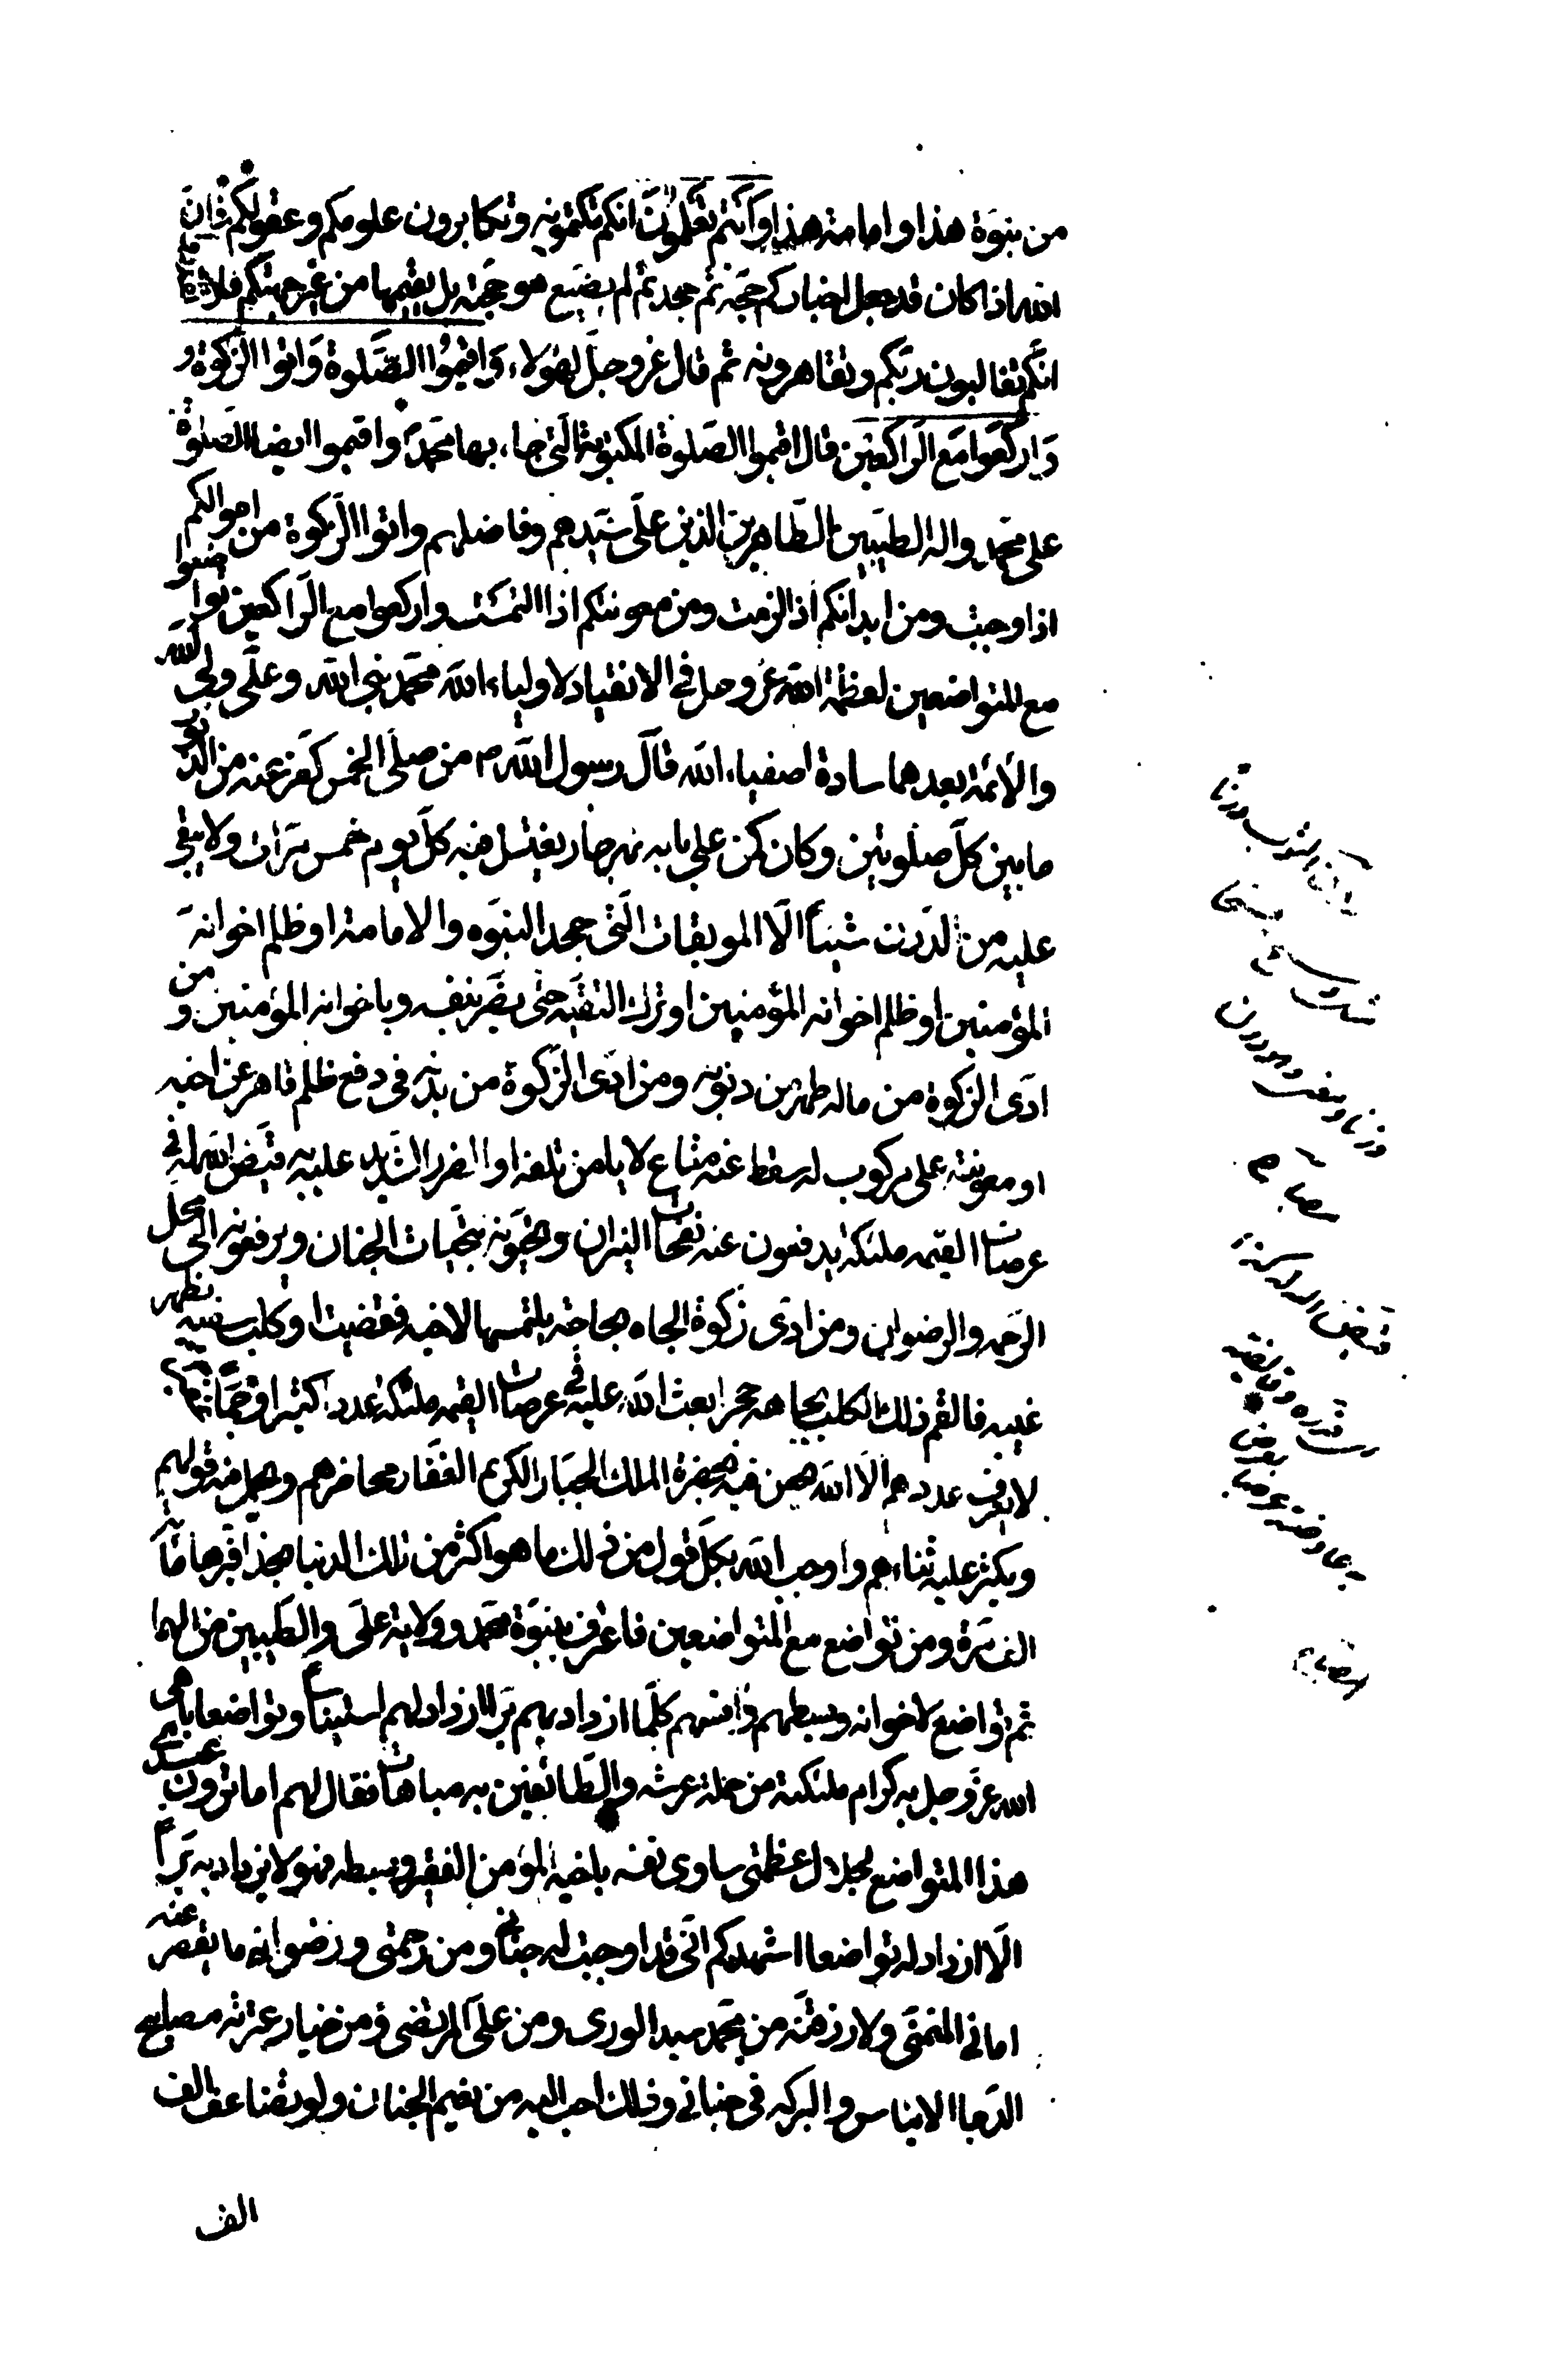 من نبوة هذا وامامة هذا وَاَنتُم تَعلَمُونَ انكم تكتمونه وتكابرون علومكم وعقولكم فان
الله اذا كان قد جعل اخباركم حجة ثم جحدتم لم يضيع هو حجته بل يقيمها من غير جهتكم فلا تقدروا
انكم تغالبون ربكم وتقاهرونه ثم قال عز وجل لهؤلاء وَاَقيمُوا الصَّلوةَ وَاتوا الزكوة
وَاركَعوا مَعَ الرّاكعين قال اقيموا الصلوة المكتوبة التى جاء بها محمد واقيموا ايضا الصلوة
على محمد واله الطيبين الطاهرين الذين على سيدهم وفاضلهم واتوا الزكوة من اموالكم
اذا وجبت ومن ابدانكم اذا لزمت ومن معونتكم اذا التمست واركعوا مع الراكعين تواضعوا
مع المتواضعين لعظمة الله عز وجل فى الانقياد لاولياء الله محمد نبى الله وعلى ولى الله
والائمة بعدهما سادة اصفياء الله قال رسول الله ص من صلى الخمس كفر عنه من الذنوب
ما بين كل صلوتين وكان كمن على بابه نهر جار يغتسل فيه كل يوم خمس مرات ولا يبقى
عليه من الدرن شيئا الا الموبقات التى جحد النبوه والامامة او ظلم اخوانه
المؤمنين او ظلم اخوانه المؤمنين او ترك التقيه حتى يضر بنفسه وباخوانه المؤمنين ومن
ادى الزكوة من ماله طهر من ذنوبه ومن ادى الزكوة من بدنه فى دفع ظلم قاهر عن اخيه
او معونته على مركوب له سقط عنه متاع لا يامن تلفه او الضرر الشديد عليه به قيض الله له فى
عرصات القيمه ملئكة يدفعون عنه نفحات النيران ويحيونه بتحيات الجنان ويرفعونه الى محل
الرحمه والرضوان ومن ادى زكوة الجاه بحاجة يلتمسها لاخيه فقضيت او كلب سفيه يظهر
غيبه فالقم ذلك الكلب بجاهه حجرا بعث الله عليه فى عرصات القيمه ملئكة عددا كثيرا وجما غفيرا
لا يعرف عددهم الا الله يحسن فيه بحضرة الملك الجبار الكريم الغفار محاضرهم ويجمل فيه قولهم
ويكثر عليه ثناءهم واوجب الله بكل قول من ذلك ما هو اكثر من ملك الدنيا بحذافيرها مائة
الف مرة ومن تواضع مع المتواضعين فاعترف بنبوة محمد وولاية على والطيبين من الهما
ثم تواضع لاخوانه وبسطهم وانسهم كلما ازداد بهم برا ازداد لهم استيناسا وتواضعا باهى
الله عز وجل به كرام ملئكته من حملة عرشه والطائفين به مباهات فقال لهم اما ترون عبدى
هذا المتواضع لجلال عظمتى ساوى نفسه باخيه المؤمن الفقير وبسطه فهو لا يزداد به برا
الا ازداد له تواضعا اشهدكم انى قد اوجبت له جنانى ومن رحمتى ورضوانى ما يقصر عنه
امانى المتمنى ولارزقنه من محمد سيد الورى ومن على المرتضى ومن خيار عترته مصابيح
الدجا الايناس والبركه فى جنانى وذلك احب اليه من نعيم الجنان ولو يضاعف الف
الف